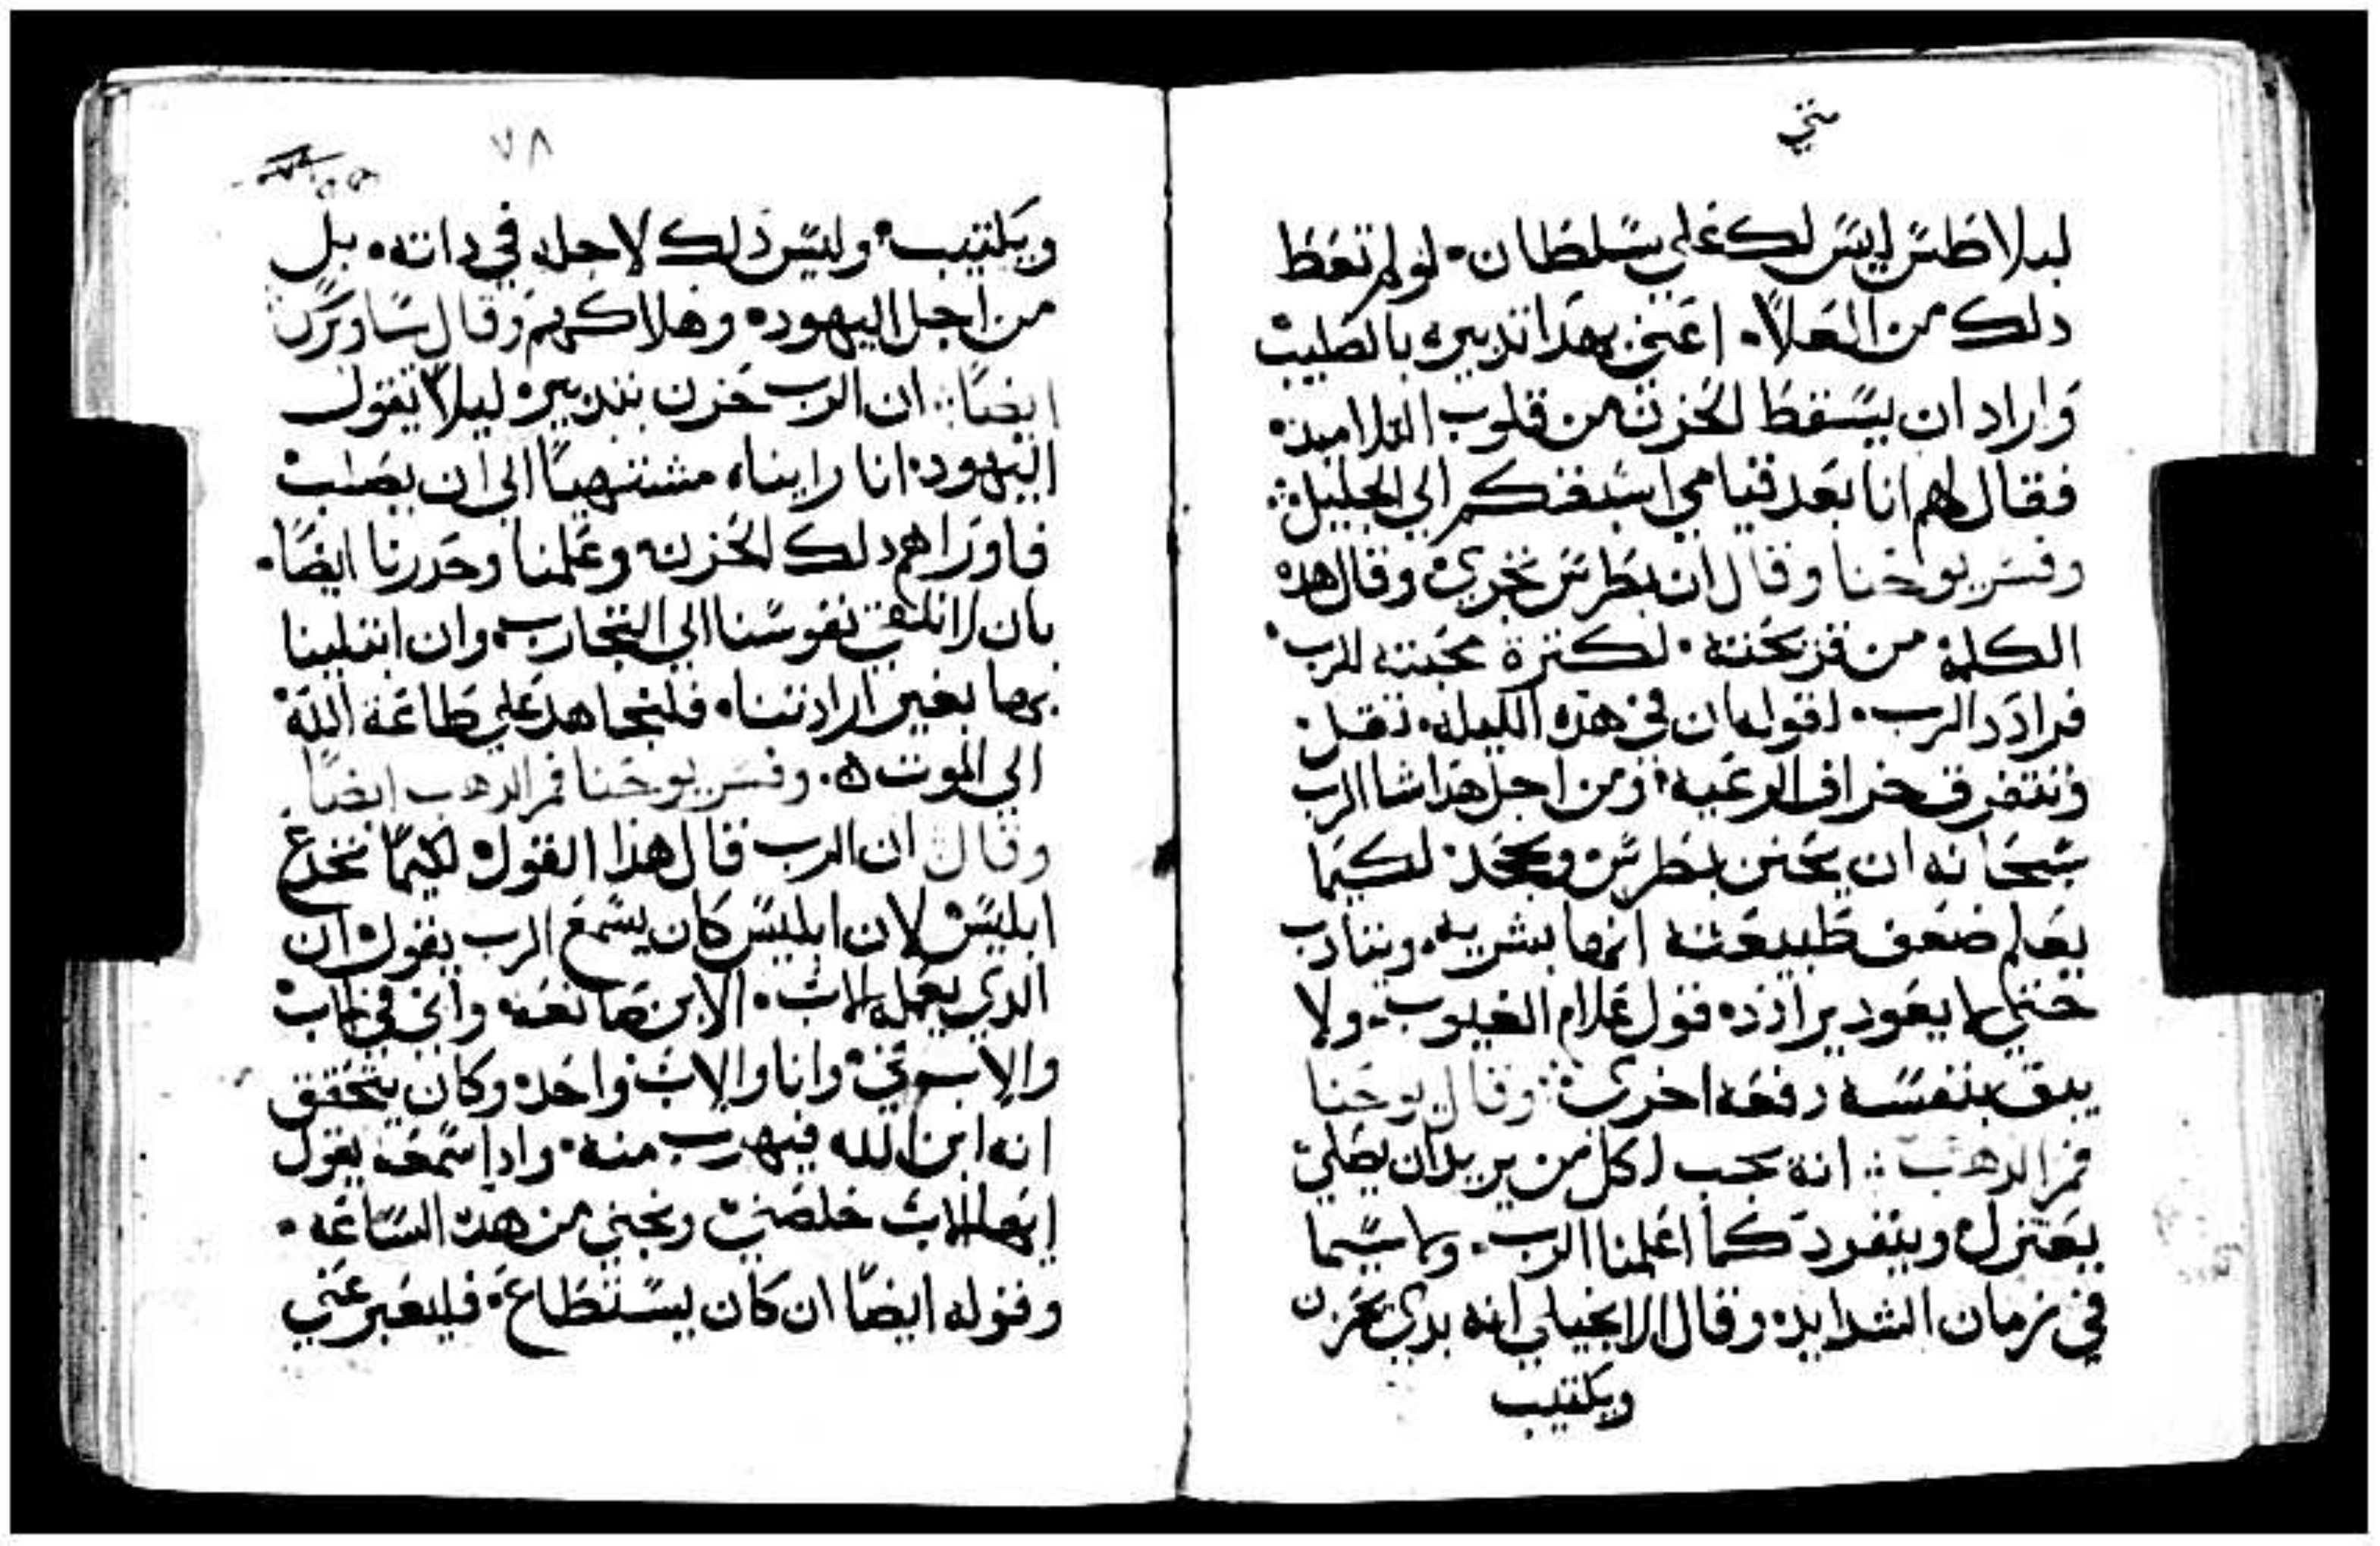 متي
لبيلاطس ليس لك علي سلطان. لو لم تعط
دلك من العلا. اعني بهدا تدبيره بالصليب
واراد ان يسقط الحزن من قلوب التلاميد.
فقال لهم انا بعد قيامي اسبقكم الي الجليل
وفسر يوحنا وقال ان بطرس تجري وقال هده
الكلمة من قريحته. لكترة محبته للرب
فرادد الرب. لقوله ان في هده الليله.
وتتفرق خراف الرعيه ومن اجل هدا شا الرب
سبحانه ان يمتحن بطرس ويجحد لكيما
يعلم ضعف طبيعته انها بشريه. ويتادب
حتي لا يعود يرادد قول علام الغيوب. ولا
يتق بنفسه دفعه اخري وقال يوحنا
فم الدهب انه يجب لكل من يريد ان يصلي
يعتزل وينفرد كما اعلمنا الرب. ولا سيما
في زمان الشدايد وقال الانجيلي انه بدي يحزن
ويكتيب
٧٨
ويكتيب وليس دلك لاجله في داته. بل
من اجل اليهود وهلاكهم وقال ساويرس
ايضا ان الرب حزن بتدبيره ليلا تقول
اليهود انا رايناه مشتهيا الي ان يصلب
فاوراهم دلك الحزن وعلمنا وحدرنا ايضا.
بان لا نلقي نفوسنا الي التجارب وان ابتلينا
بها بغير ارادتنا. فلنجاهد علي طاعة الله
الي الموت ه. وفسر يوحنا فم الدهب ايضا
وقال ان الرب قال هذا القول لكيما يخدع
ابليس لان ابليس كان يسمع الرب يقول ان
الدي يعمله الاب. الابن صانعه واني في الاب
والاب في وانا والاب واحد وكان يتحقق
انه ابن الله فيهرب منه. وادا سمعه يقول
ايها الاب خلصني ونجني من هده الساعه.
وقوله ايضا ان كان يستطاع فليعبر عني